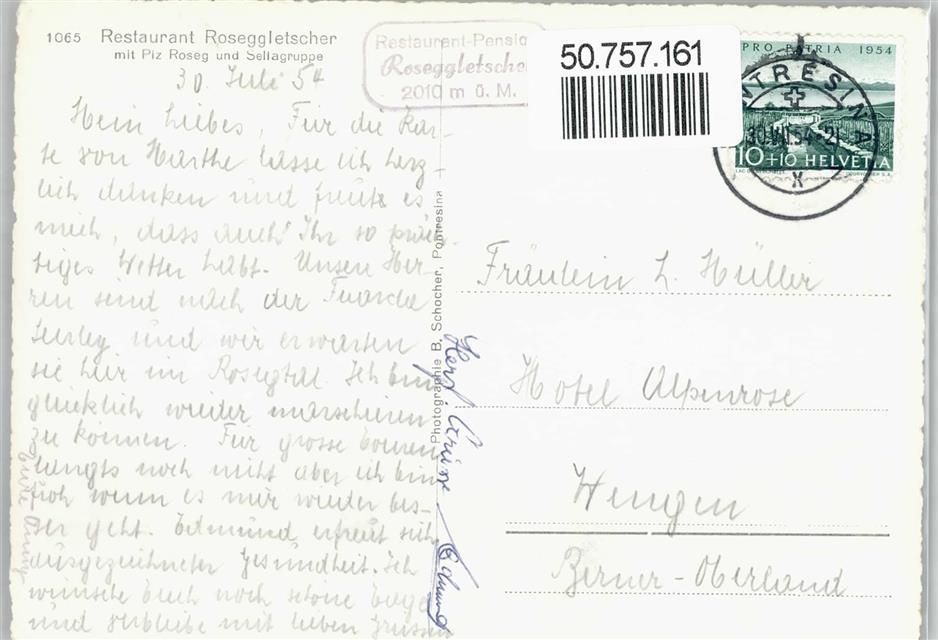 1065 Restaurant Roseggletscher
mit Piz Roseg und Sellagruppe
30. Juli 54
Mein Liebes, Für die Kar-
te von Marthe lasse ich herz
lich danken und freute es
mich, dass auch Ihr so präch-
tiges Wetter habt. Unsere Her-
ren sind nach der Fuorcla
Surley und wir erwarten
sie hier im Rosegtal. Ich bin
glücklich wieder marschieren
zu können. Für grosse Touren
langts noch nicht aber ich bin
froh wenn es mir wieder bes-
ser geht. Edmund erfreut sich
ausgezeichneter Gesundheit. Ich
wünsche Euch noch schöne Tage
und verbleibe mit lieben Grüssen
Eure
Herzl. Grüsse Edmund
Photographie B. Schocher, Pontresina
Restaurant-Pensio
Roseggletsche
2010 m ü. M.
50.757.161
PRO PATRIA 1954
NTRESIN
30.VII.54-21
10+10 HELVETIA
X
Fräulein L. Müller
Hotel Alpenrose
Wengen
Berner-Oberland